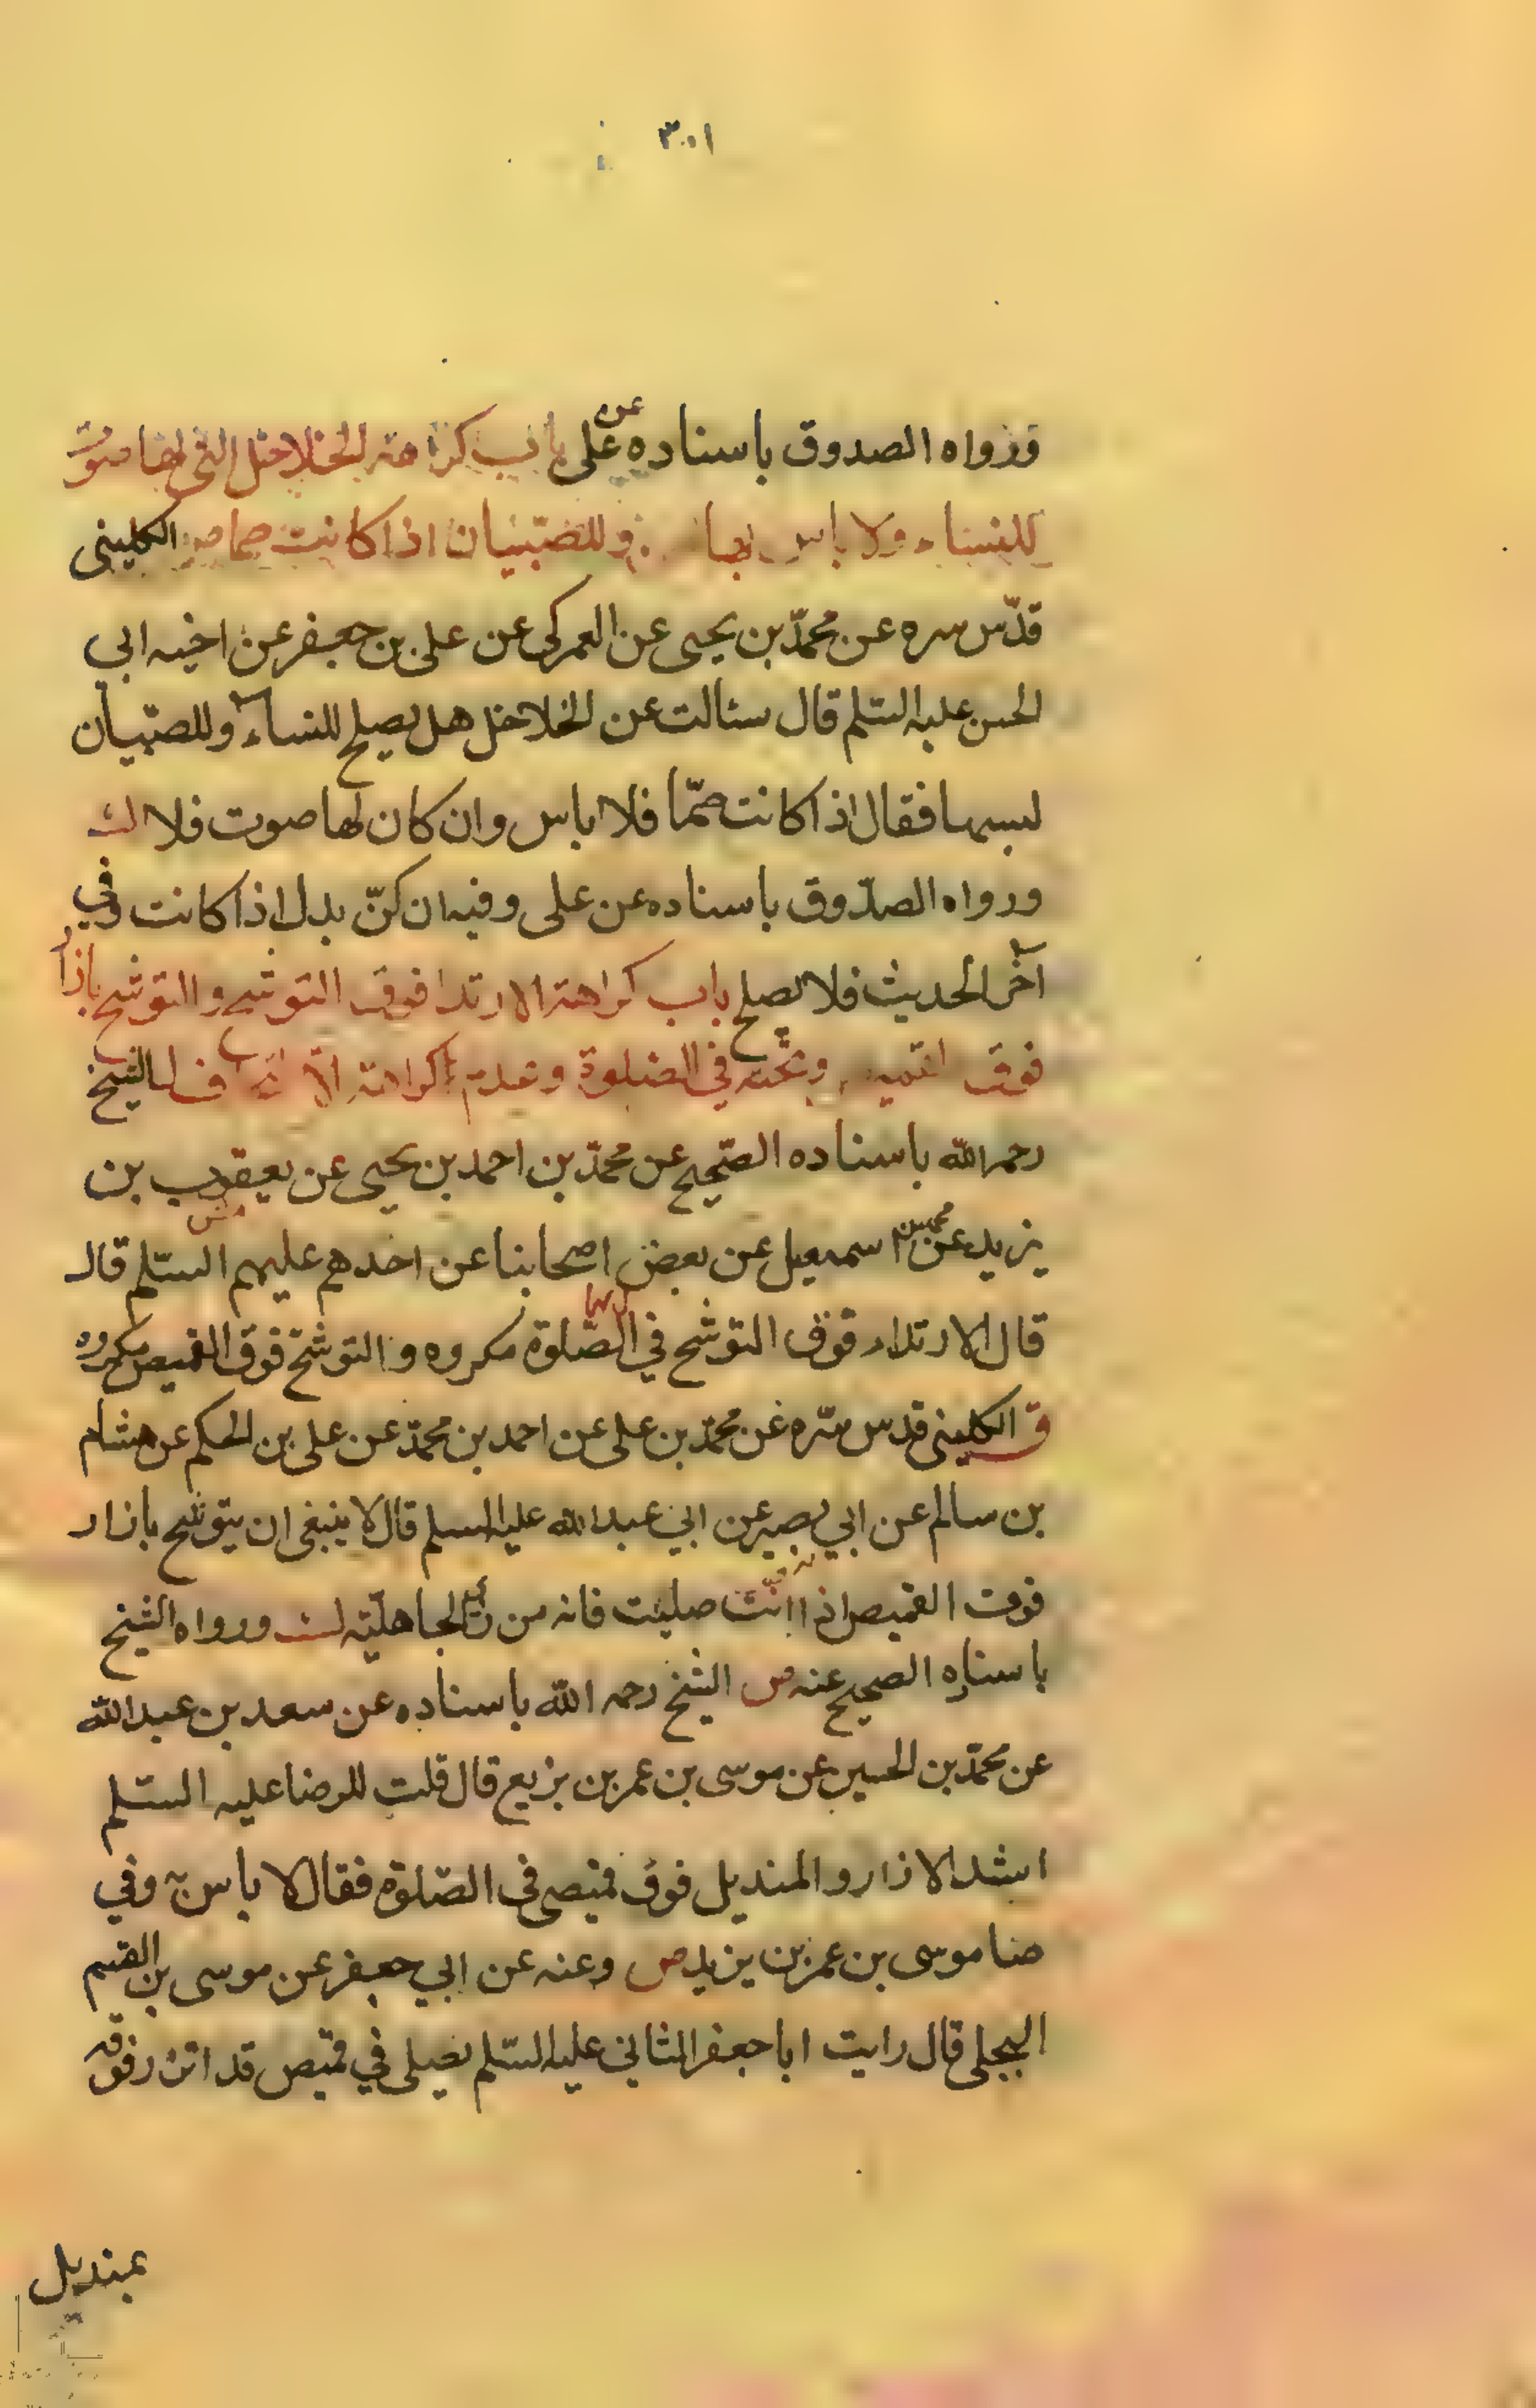 ٣٠١
ورواه الصدوق باسناده عن على باب كراهة الخلاخل التى لها صوت
للنساء ولا باس بها وللصّبيان اذا كانت صماء الكلينى
قدّس سره عن محمّد بن يحيى عن العمركى عن على بن جعفر عن اخيه ابي
الحسن عليه السّلم قال سئالت عن الخلاخل هل يصلح للنساء وللصّبيان
لبسها فقال اذا كانت صمّا فلا باس وان كان لها صوت فلا
ورواه الصدّوق باسناده عن على وفيه ان كنّ بدل اذا كانت وفي
آخر الحديث فلا يصلح باب كراهة الارتدا فوق التوشح والتوشح بازار
فوق وتحته في الصلوة وعدم كراهة الشيخ
رحمه الله باسناده الصّحيح عن محمّد بن احمد بن يحيى عن يعقوب بن
يزيد عن اسمعيل عن بعض اصحابنا عن احدهم عليهم السّلم قال
قال الارتداء فوق التوشح في الصّلوة مكروه والتوشح فوق القميص مكروه
ق الكلينى قدس سّره عن محمّد بن على عن احمد بن محمّد عن على بن الحكم عن هشام
بن سالم عن ابي بصير عن ابي عبد الله عليه السلم قال لا ينبغى ان يتوشح بازار
فوق القميص اذا انت صليت فانه من زى الجاهليّة ورواه الشيخ
باسناده الصحيح عنه ص الشيخ رحمه الله باسناده عن سعد بن عبد الله
عن محمّد بن الحسين عن موسى بن عمر بن بزيع قال قلت للرضا عليه السّلم
اشد الازار والمنديل فوق قميصى فى الصّلوة فقال لا باس به وفي
صا موسى بن عمر بن يزيد ص وعنه عن ابي جعفر عن موسى بن القسم
البجلى قال رايت ابا جعفر الثاني عليه السّلم يصلى في قميص قد اتزر فوقه
بمنديل